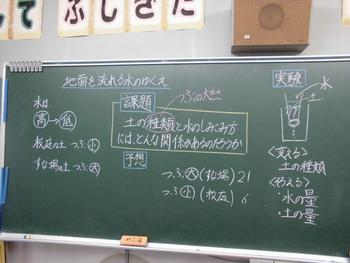 して ふしぎだ
地面を流れる水のゆくえ
水は
高→低
校庭の土 つぶ小
すな場の土 つぶ大
課題
つぶの大きさ
土の種類と水のしみこみ方
には、どんな関係があるのだろうか
予想
つぶ大(すな場) 21
つぶ小(校庭) 6
実験
水
土
<変える>
土の種類
<そろえる>
・水の量
・土の量